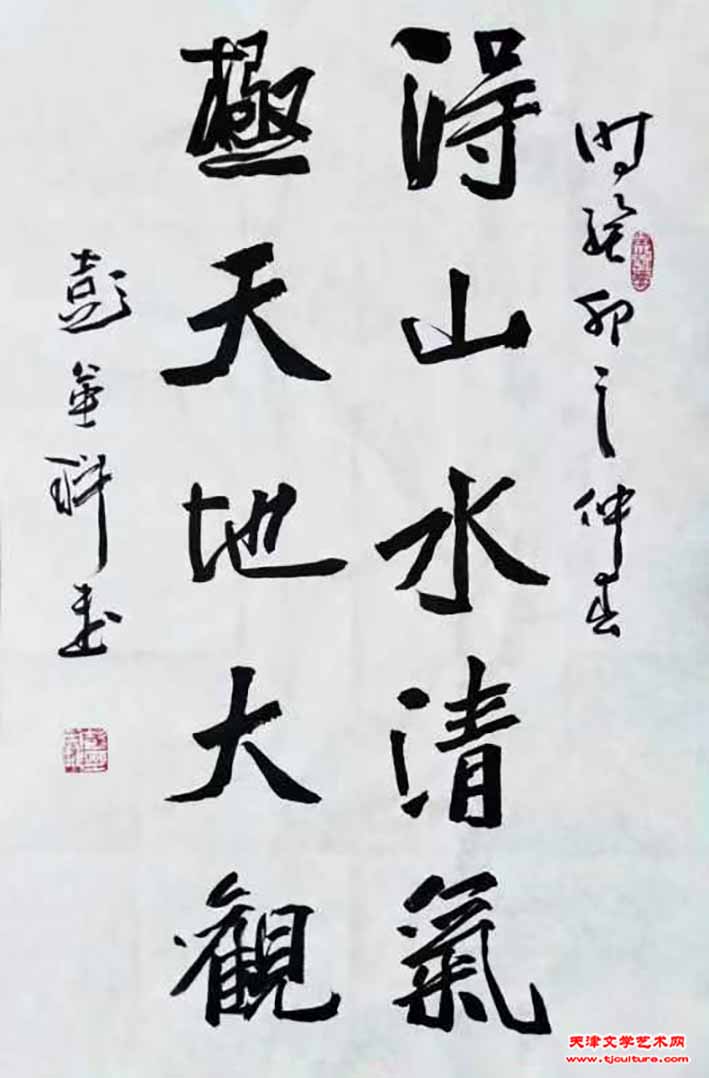 时癸卯之仲春
得山水清氣
極天地大觀
彭
天津文学艺术网
www.tjculture.com